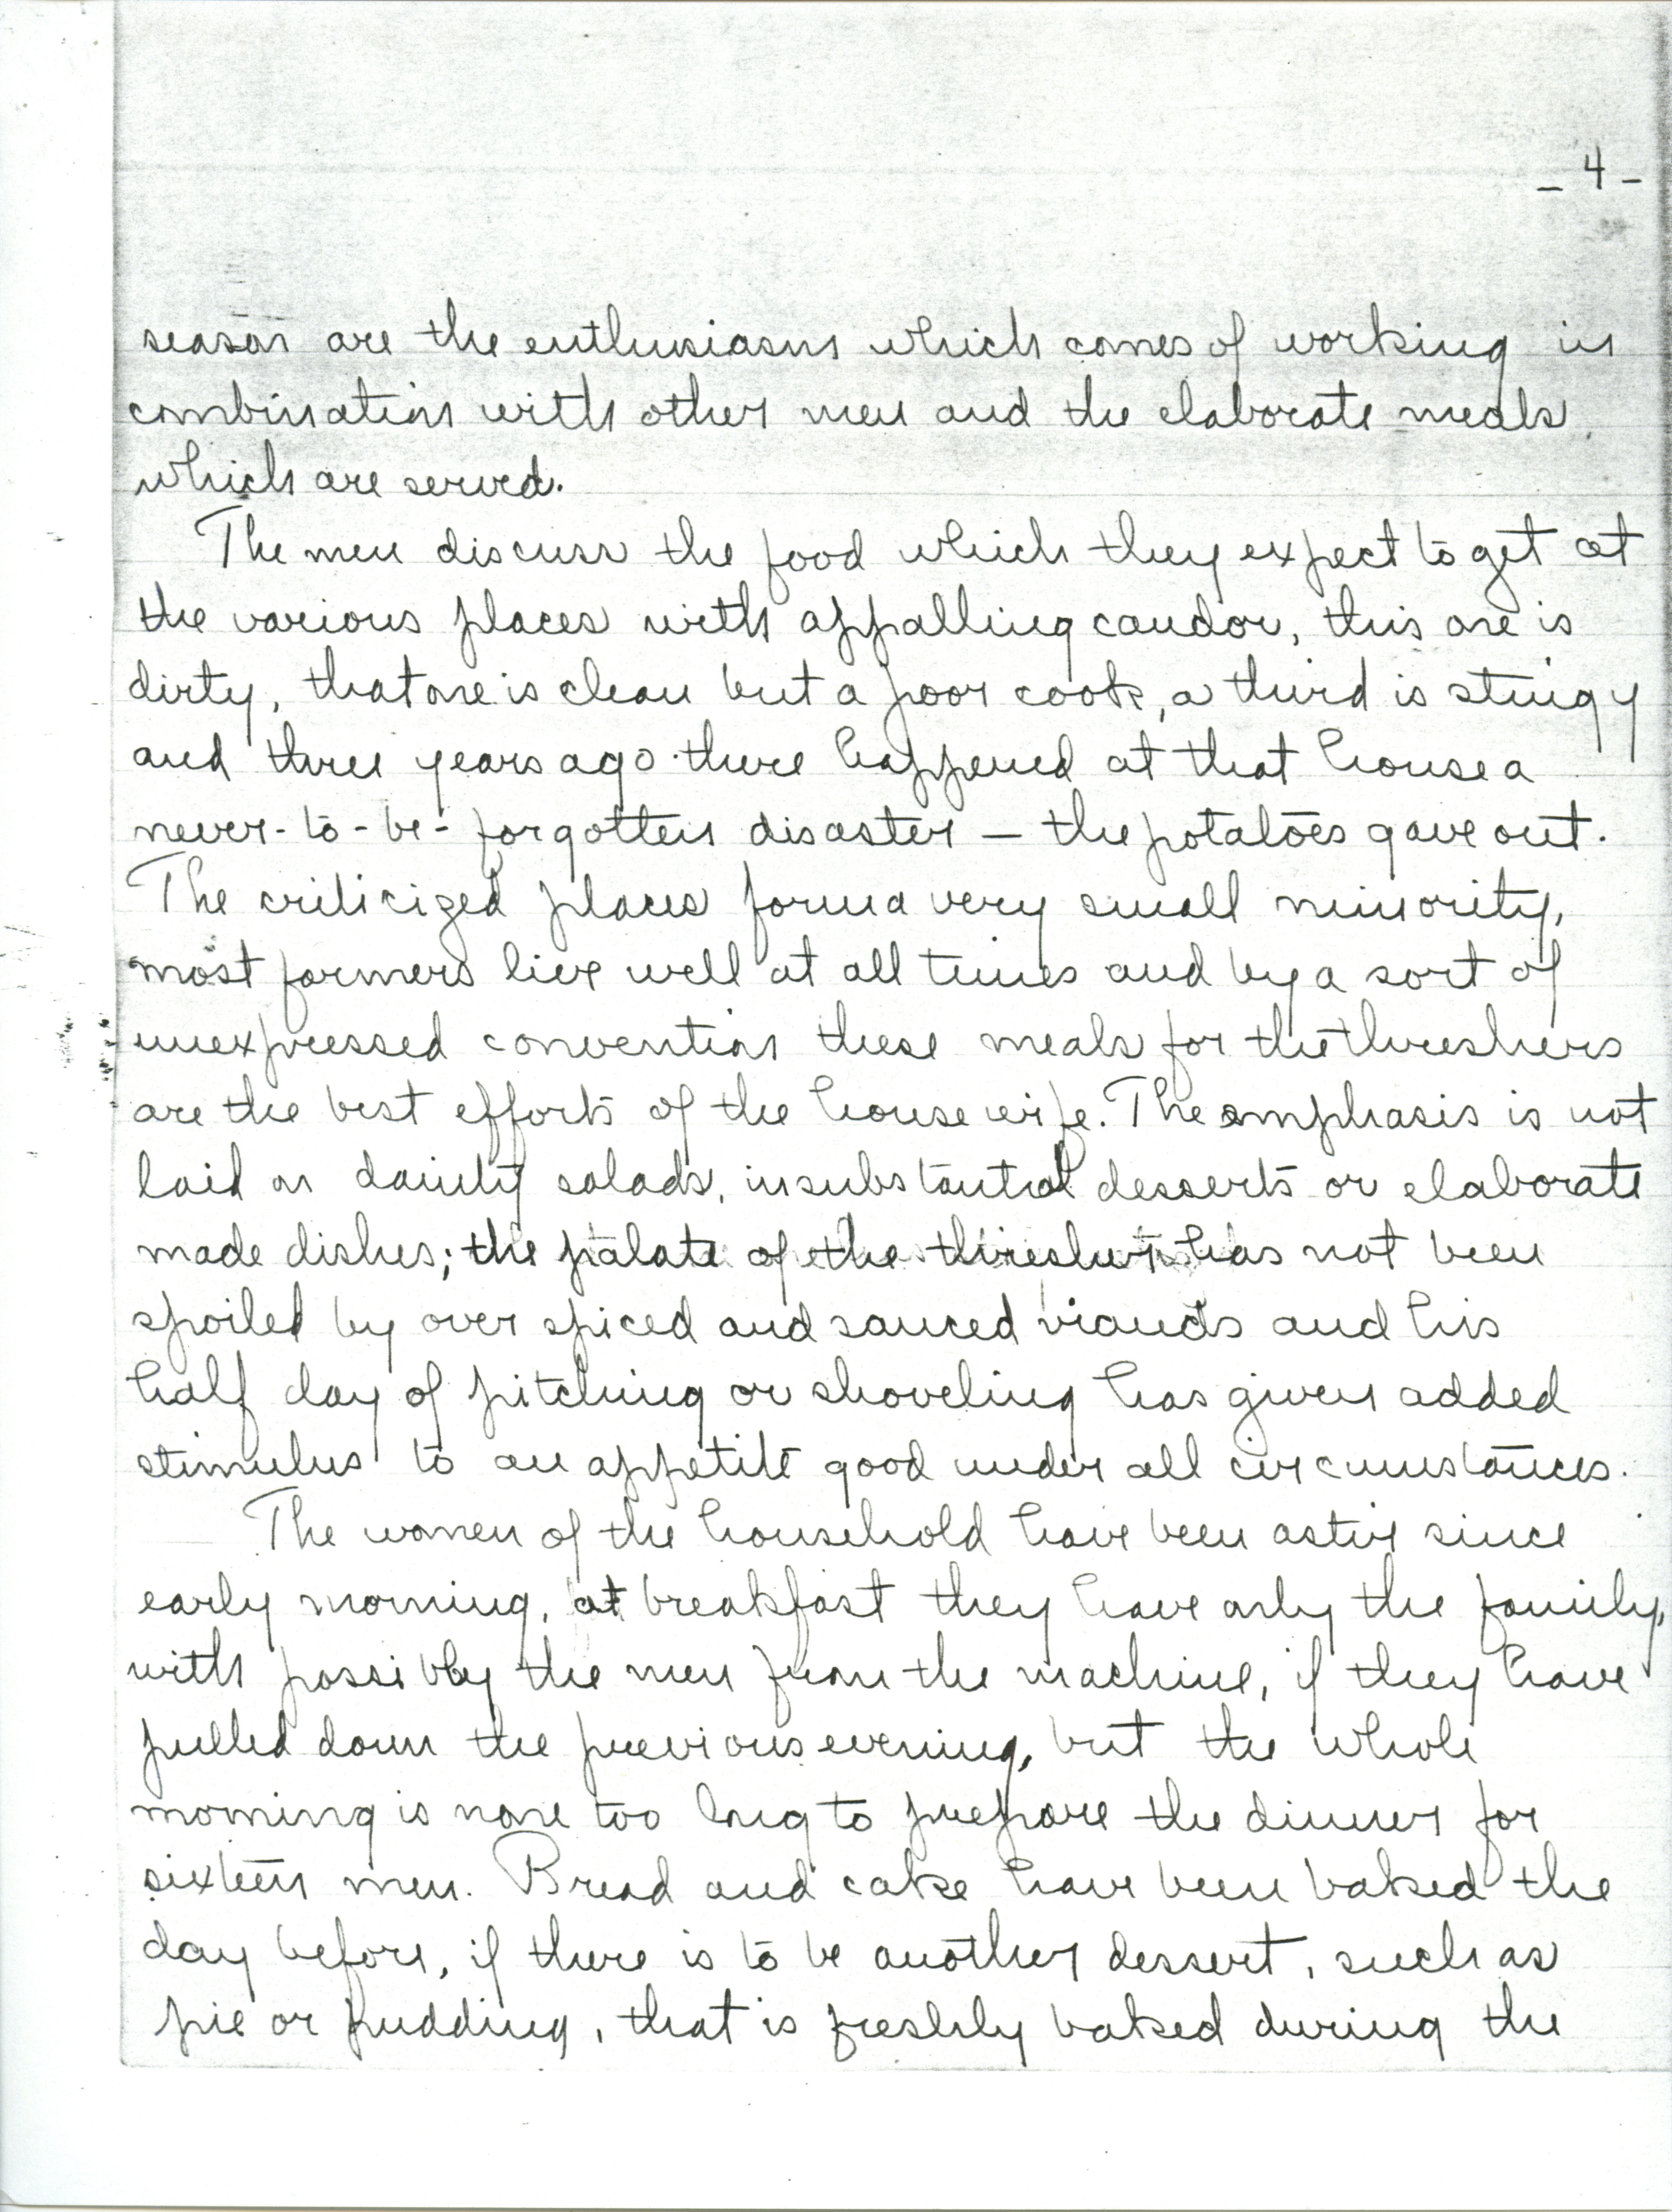 - 4 -
season are the enthusiasm which comes of working in
combination with other men and the elaborate meals
which are served.
The men discuss the food which they expect to get at
the various places with appalling candor, this one is
dirty, that one is clean but a poor cook, a third is stingy
and three years ago there happened at that house a
never-to-be-forgotten disaster — the potatoes gave out.
The criticized places form a very small minority,
most farmers live well at all times and by a sort of
unexpressed convention these meals for the threshers
are the best efforts of the housewife. The emphasis is not
laid on dainty salads, insubstantial desserts or elaborate
made dishes; the palate of the thresher has not been
spoiled by over spiced and sauced viands and his
half day of pitching or shoveling has given added
stimulus to an appetite good under all circumstances.
The women of the household have been active since
early morning, at breakfast they have only the family,
with possibly the men from the machine, if they have
pulled down the previous evening, but the whole
morning is none too long to prepare the dinner for
sixteen men. Bread and cake have been baked the
day before, if there is to be another dessert, such as
pie or pudding, that is freshly baked during the